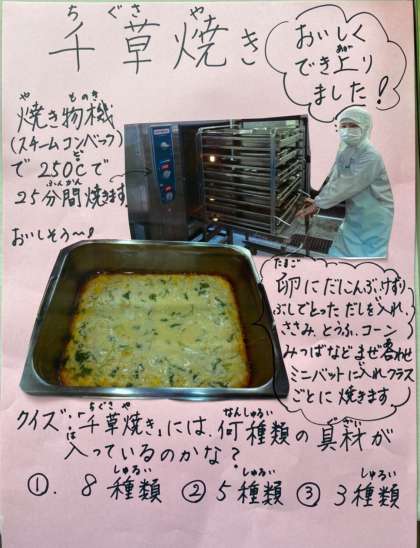 ちぐさや
千草焼き
おいしく
でき上り
ました!
やものき
焼き物機
(スチームコンベック)
で250℃で
25分間焼きます
おいしそう〜!
たまご
卵にだしこんぶ、けずり
ぶしでとっただしを入れ、
ささみ、とうふ、コーン
みつばなどまぜ合わせ
ミニバットに入れクラス
ごとに焼きます
クイズ:「千草焼き」には、何種類の具材が
入っているのかな?
①. 8種類 ②5種類 ③3種類